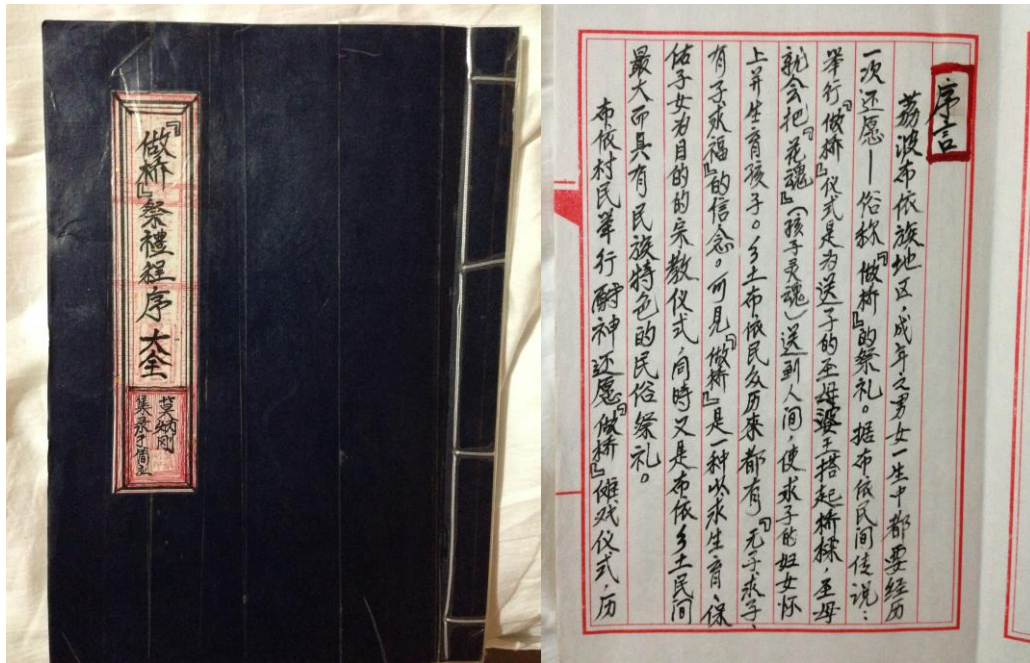 『做桥』祭禮程序大全
莫炳刚
集录于莆
序言
荔波布依族地区，成年之男女一生中都要经历
一次还愿——俗称『做桥』的祭礼。据布依民间传说：
举行『做桥』仪式是为送子的圣母婆王搭起桥樑，圣母
就会把『花魂』（孩子灵魂）送到人间，使求子的妇女怀
上并生育孩子。乡土布依民众历来都有『无子求子、
有子求福』的信念。可见『做桥』是一种以求生育、保
佑子女为目的的宗教仪式，同時又是布依乡土民间
最大而具有民族特色的民俗祭礼。
布依村民举行酬神还愿『做桥』傩戏仪式，历